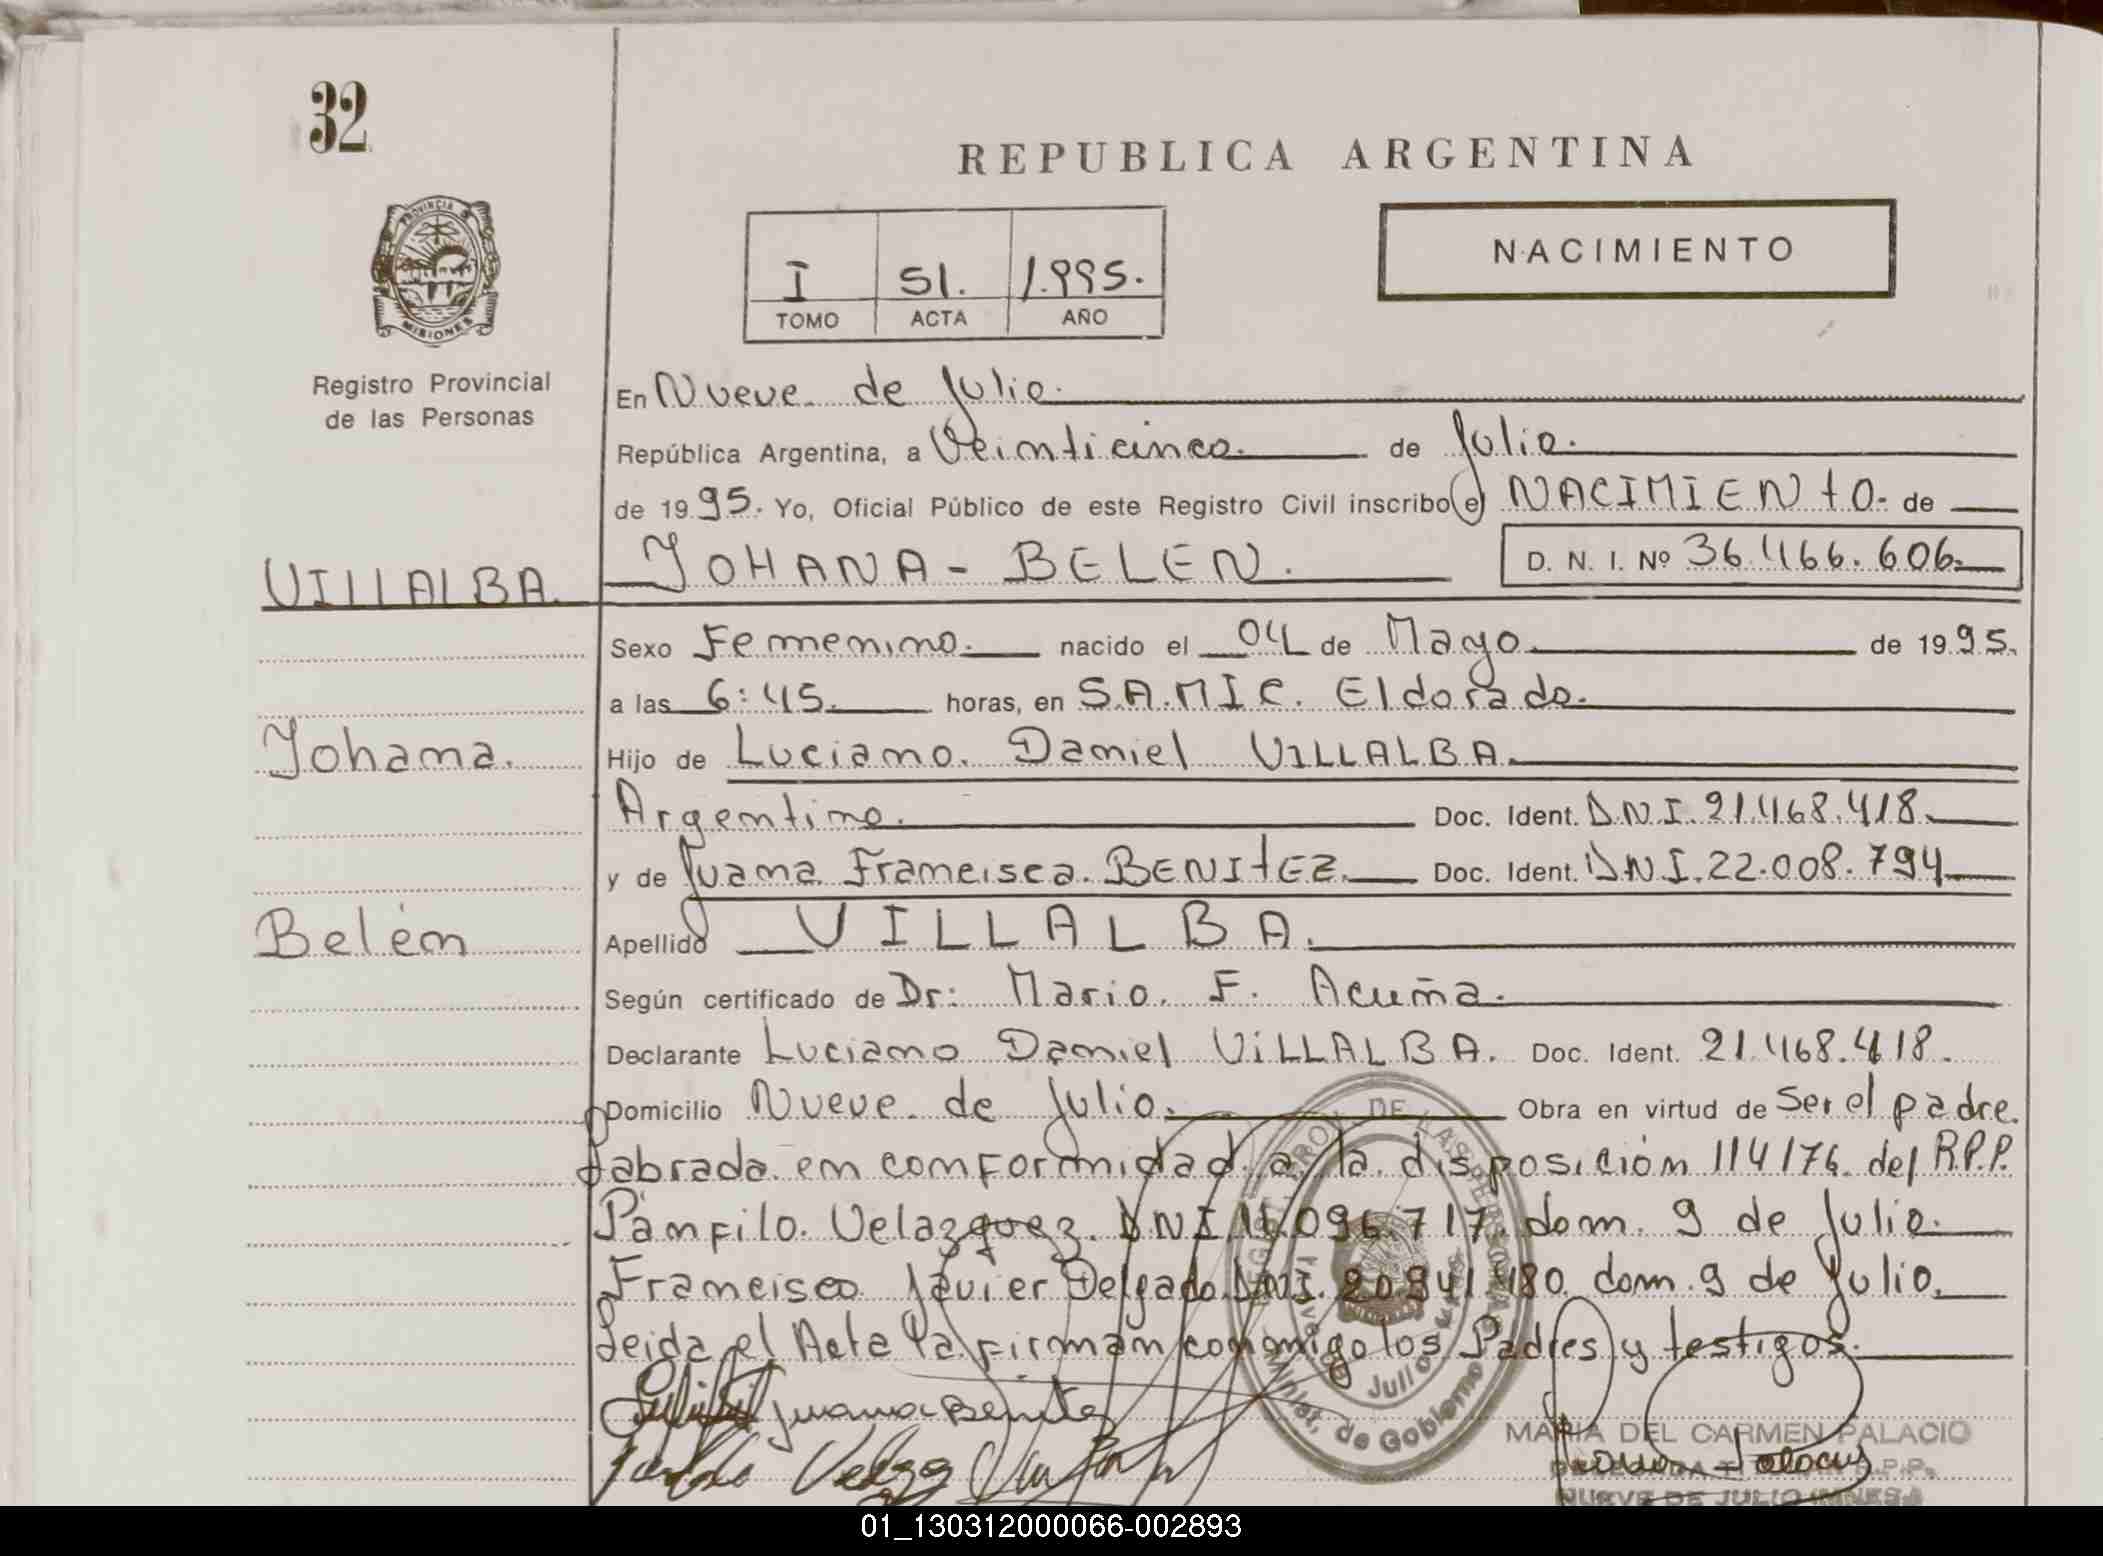 32
REPUBLICA ARGENTINA
NACIMIENTO
PROVINCIA
MISIONES
I 51. 1.995.
TOMO ACTA AÑO
Registro Provincial
de las Personas
En Nueve de Julio.
República Argentina, a Veinticinco. de Julio.
de 1995. Yo, Oficial Público de este Registro Civil inscribo el NACIMIENTO- de
VILLALBA. JOHANA - BELEN. D. N. I. Nº 36.466.606.
Sexo Femenino. nacido el 04 de Mayo de 1995.
a las 6:45. horas, en S.A.MIC. Eldorado.
Johana. Hijo de Luciano. Daniel VILLALBA.
Argentino. Doc. Ident. DNI.21.468.418.
y de Juana Francisca. BENITEZ. Doc. Ident. DNI.22.008.794
Belén Apellido VILLALBA.
Según certificado de Dr: Mario. F. Acuña.
Declarante Luciano Daniel VILLALBA. Doc. Ident. 21.468.418.
Domicilio Nueve de Julio. Obra en virtud de Ser el padre.
Labrada en conformidad a la disposición 114/76. del R.P.P.
Pánfilo. Velazquez. DNI 11.096.717. dom. 9 de Julio.
Francisco Javier Delgado. DNI. 20941480. dom. 9 de Julio.
Leida el Acta la firman conmigo los Padres y testigos.
Juana Benitez
MARIA DEL CARMEN PALACIO
R.P.P.
NUEVE DE JULIO (MNES.)
Minist. de Gobierno
01_130312000066-002893